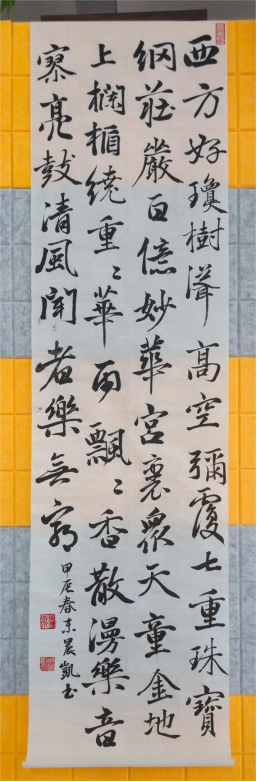 西方好瓊樹聳高空彌覆七重珠寶
網莊嚴百億妙華宮裏衆天童金地
上欄楯繞重〻華雨飄〻香散漫樂音
寥亮鼓清風聞者樂無窮
甲辰春晨凱书